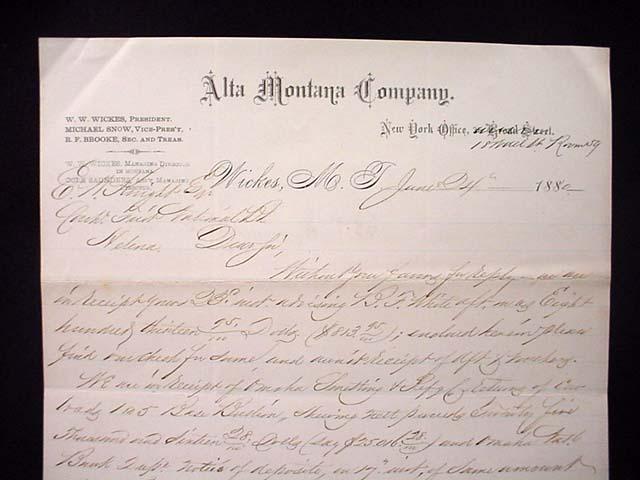 Alta Montana Company.
W. W. WICKES, PRESIDENT.
MICHAEL SNOW, VICE-PRES'T,
R. F. BROOKE, SEC. AND TREAS.
New York Office, Broad Street.
18 Wall St Room 59
W. W. WICKES, MANAGING DIRECTOR
IN MONTANA.
COLE SAUNDERS, ASS'T MANAGING
DIRECTOR.
Wickes, M. T. June 24" 1880
E. W. Knight Esq
Cash' First National Bk
Helena. Dear Sir,
Without your favors for reply - we are
in receipt yours 23d inst advising R. F. White dft. on us Eight
hundred thirteen 95/00 Dolls ($813 95/00); enclosed herein please
find our check for same, and await receipt of dft &
We are in receipt of Omaha Smelting & Refg Co returns of Car
loads 1 to 5 Base Bullion, showing nett proceeds Twenty five
Thousand and sixteen 28/00 Dolls (say $25016 28/00) and Omaha Natl
Bank notice of deposite, on 17" inst, of same amount